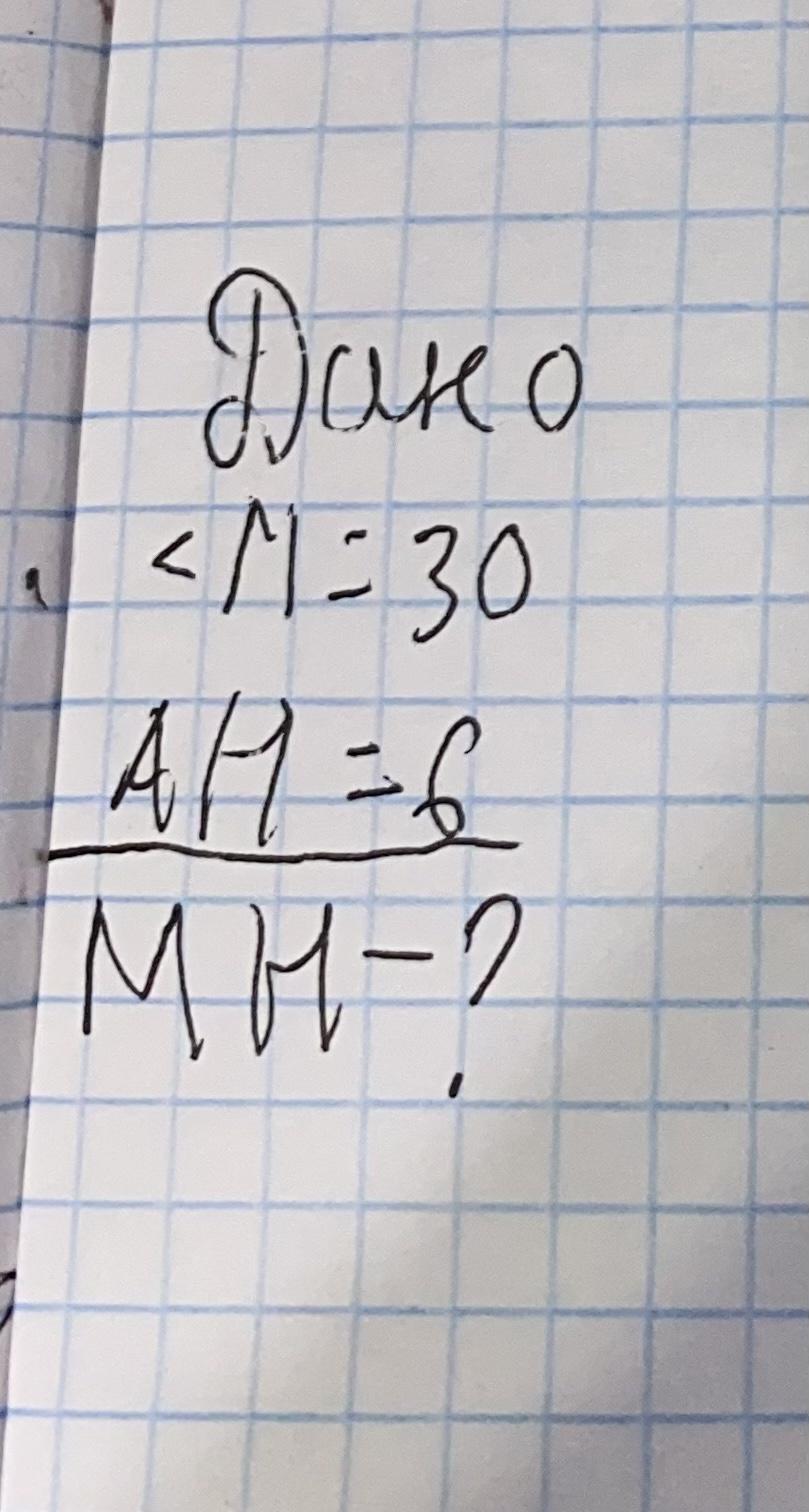 Дано
<M=30
AH=6
MH-?